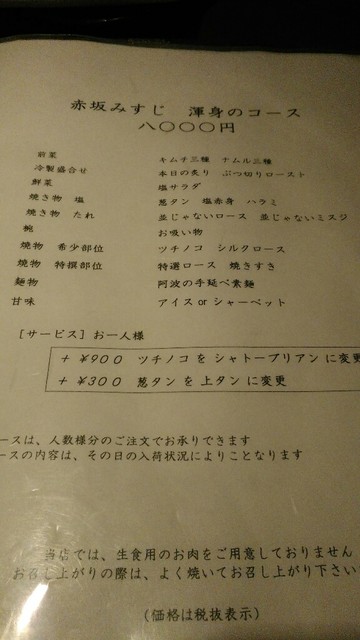 赤坂みすじ 渾身のコース
八〇〇〇円
前菜 キムチ三種 ナムル三種
冷製盛合せ 本日の炙り ぶつ切りロースト
鮮菜 塩サラダ
焼き物 塩 葱タン 塩赤身 ハラミ
焼き物 たれ 並じゃないロース 並じゃないミスジ
椀 お吸い物
焼物 希少部位 ツチノコ シルクロース
焼物 特撰部位 特選ロース 焼きすき
麺物 阿波の手延べ素麺
甘味 アイス or シャーベット
[サービス] お一人様
+ ¥900 ツチノコ を シャトーブリアン に変更
+ ¥300 葱タン を 上タン に変更
ースは、人数様分のご注文でお承りできます
ースの内容は、その日の入荷状況によりことなります
当店では、生食用のお肉をご用意しておりません
お召し上がりの際は、よく焼いてお召し上がり下さい
(価格は税抜表示)